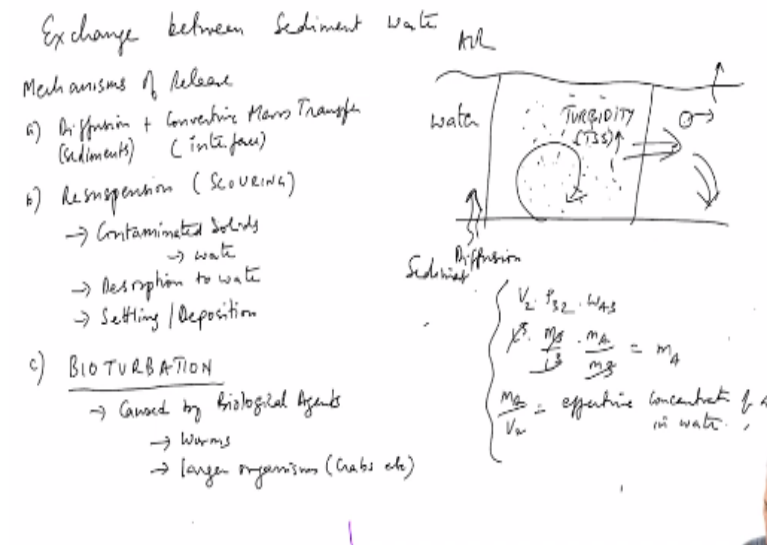 Exchange between Sediment Water
Mechanisms of Release
a) Diffusion + Convective Mass Transfer
(Sediments) (interface)
b) Resuspension (SCOURING)
→ Contaminated Solids
→ water
→ Desorption to water
→ Settling / Deposition
c) BIOTURBATION
→ Caused by Biological Agents
→ Worms
→ larger organisms (Crabs etc)
AIR
Water
TURBIDITY
(TSS)↑
Diffusion
Sediment
V₂ · ρ₃₂ · WA3
= mA
mA
= effective concentrat of A
in water.